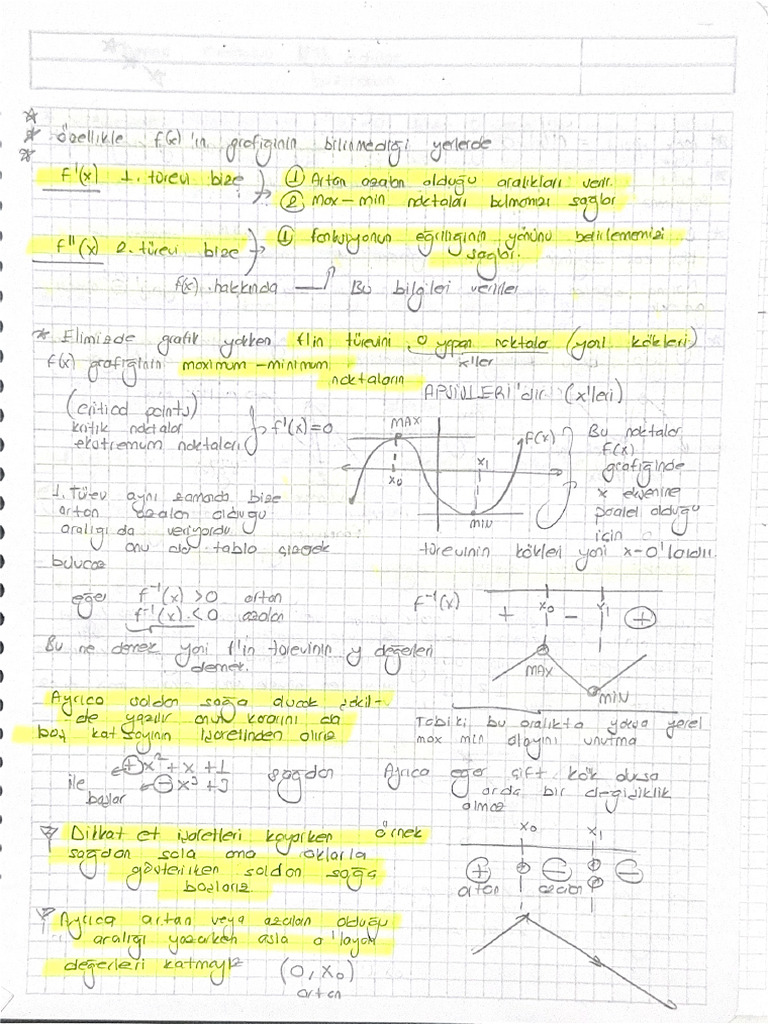 özellikle f(x)'in grafiğinin bilinmediği yerlerde
f'(x) 1. türevi bize
① Artan azalan olduğu aralıkları verir.
② max-min noktaları bulmamızı sağlar
f''(x) 2. türevi bize
① fonksiyonun eğriliğinin yönünü belirlememizi
sağlar.
f(x) hakkında
Bu bilgileri verirler
* Elimizde grafik yokken f'in türevini 0 yapan noktalar (yani kökleri)
x'ler
f(x) grafiğinin maximum-minimum
noktaların
APSİSLERİ'dir (x'leri)
(critical points)
kritik noktalar
ekstremum noktaları
f'(x)=0
MAX
f(x)
x₀
x₁
MIN
Bu noktalar
f(x)
grafiğinde
x eksenine
paralel olduğu
için
türevinin kökleri yani x-0'lardır.
1. Türev aynı zamanda bize
artan azalan olduğu
aralığı da veriyordu
onu da tablo çizerek
bulucaz
eğer f⁻¹(x) > 0 artan
f⁻¹(x) < 0 azalan
Bu ne demek yani f'in türevinin y değerleri
demek.
f⁻¹(x)
x₀ x₁
+ - +
MAX
MIN
Ayrıca soldan sağa olucak şekil-
de yazılır onun kararını da
baş katsayının işaretinden alırız
Tabiki bu aralıkta yoksa yerel
max min olayını unutma
+x² + x + 1
-x³ + 3
sağdan
ile
başlar
Ayrıca eğer çift kök olursa
orda bir değişiklik
olmaz
Dikkat et işaretleri koyarken örnek
sağdan sola ama oklarla
gösterirken soldan sağa
başlarız.
x₀ x₁
+ - -
artan azalan
Ayrıca artan veya azalan olduğu
aralığı yazarken asla 0'layan
değerleri katmayız (0, x₀)
artan